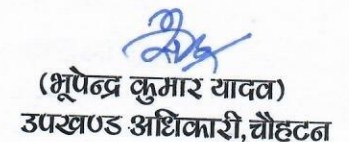 (भूपेन्द्र कुमार यादव)
उपखण्ड अधिकारी, चौहटन